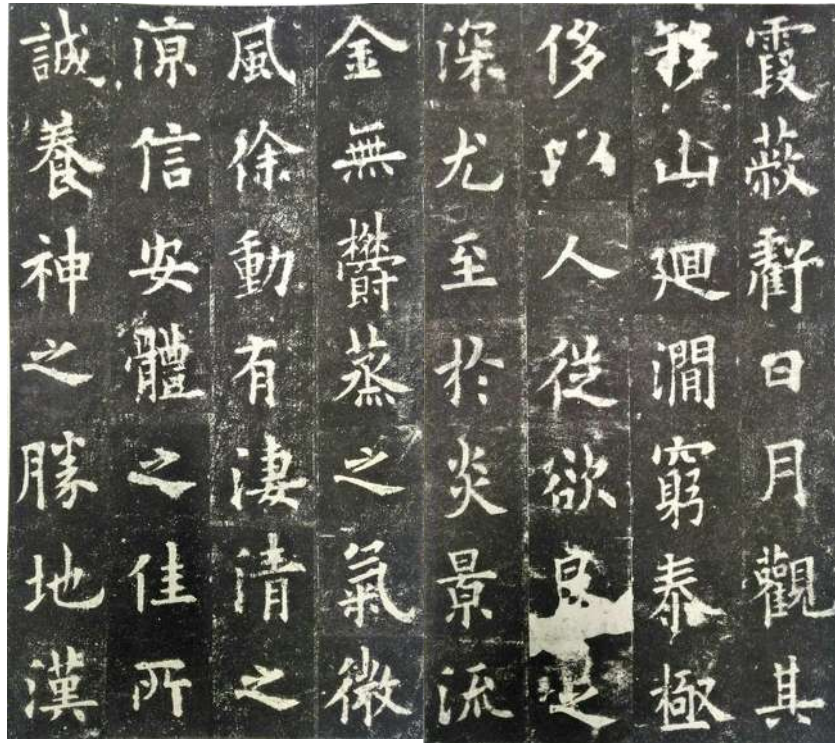 霞蔽虧日月觀其
移山廻澗窮泰極
侈以人従欲良
深尤至於炎景流
金無鬱蒸之氣微
風徐動有淒清之
涼信安體之佳所
誠養神之勝地漢